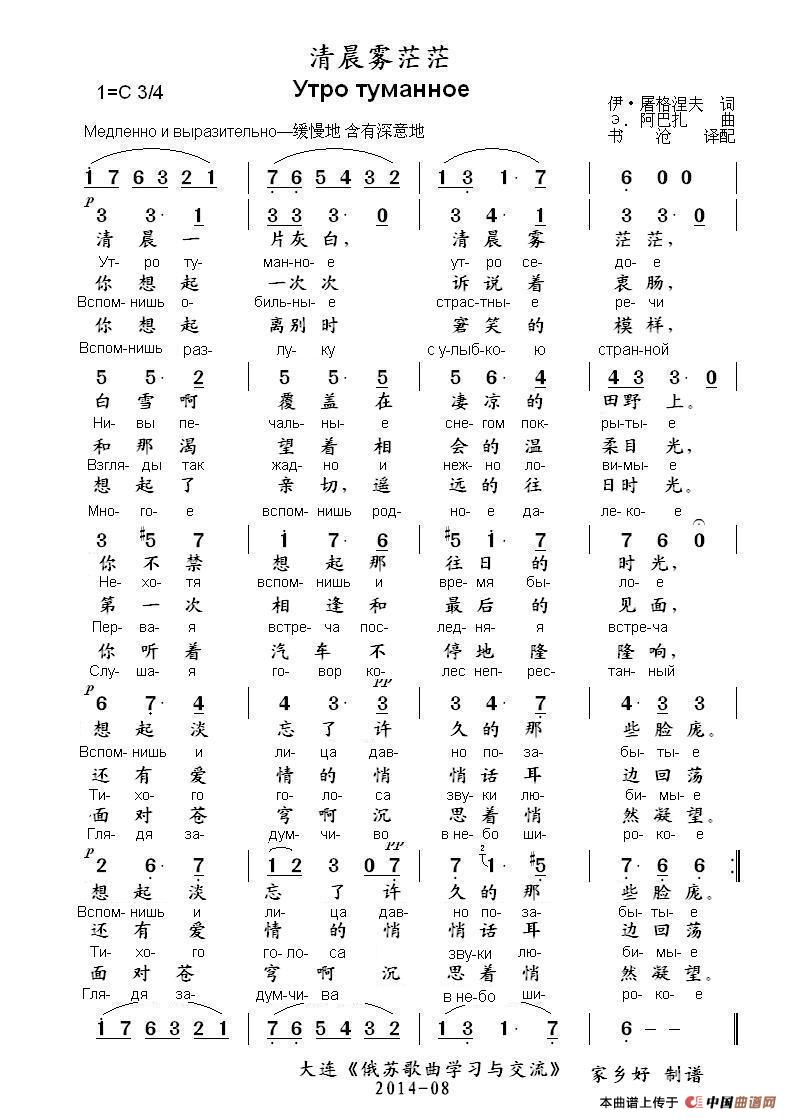 清晨雾茫茫
Утро туманное
1=C 3/4
伊·屠格涅夫 词
Э. 阿巴扎 曲
书沧 译配
Медленно и выразительно—缓慢地 含有深意地
1 7 6 3 2 1 | 7 6 5 4 3 2 | 1 3 1· 7 | 6 0 0
p
3 3· 1 | 3 3 3· 0 | 3 4· 1 | 3 3· 0
清晨一 片灰白， 清晨雾 茫茫，
Ут- ро ту- ман-но- е ут- ро се- до- е
你想起 一次次 诉说着 衷肠，
Вспом-нишь о- биль-ны- е страст-ны- е ре- чи
你想起 离别时 窘笑的 模样，
Вспом-нишь раз- лу- ку с у-лыб-ко- ю стран-ной
5 5· 2 | 5 5· 5 | 5 6· 4 | 4 3 3· 0
白雪啊 覆盖在 凄凉的 田野上。
Ни- вы пе- чаль-ны- е сне- гом пок- ры-ты- е
和那渴 望着相 会的温 柔目光，
Взгля- ды так жад- но и неж- но ло- ви-мы- е
想起了 亲切，遥 远的往 日时光。
Мно- го- е вспом-нишь род- но- е да- ле-ко- е
3 #5 7 | 1 7· 6 | #5 1· 7 | 7 6 0
你不禁 想起那 往日的 时光，
Не- хо- тя вспом-нишь и вре- мя бы- ло- е
第一次 相逢和 最后的 见面，
Пер- ва- я встре- ча пос- лед- ня- я встре-ча
你听着 汽车不 停地隆 隆响，
Слу- ша- я го- вор ко- лес неп- рес- тан-ный
p pp
6 7· 4 | 4 3· 3 | 3 4· 7 | 4· 3 3
想起淡 忘了许 久的那 些脸庞。
Вспом- нишь и ли- ца дав- но по- за- бы- ты- е
还有爱 情的悄 悄话耳 边回荡
Ти- хо- го го- ло- са зву- ки лю- би- мы- е
面对苍 穹啊沉 思着悄 然凝望。
Гля- дя за- дум- чи- во в не- бо ши- ро- ко- е
p pp
2 6· 7 | 1 2 3 0 7 | 7 2 1· #5 | 7· 6 6 :
想起淡 忘了许 久的那 些脸庞。
Вспом- нишь и ли- ца дав- но по- за- бы- ты- е
还有爱 情的悄 悄话耳 边回荡
Ти- хо- го го- ло- са зву-ки лю- би- мы- е
面对苍 穹啊沉 思着悄 然凝望。
Гля- дя за- дум-чи-ва в не-бо ши- ро- ко- е
1 7 6 3 2 1 | 7 6 5 4 3 2 | 1 3 1· 7 | 6 - -
大连《俄苏歌曲学习与交流》 家乡好 制谱
2014-08
本曲谱上传于 中国曲谱网